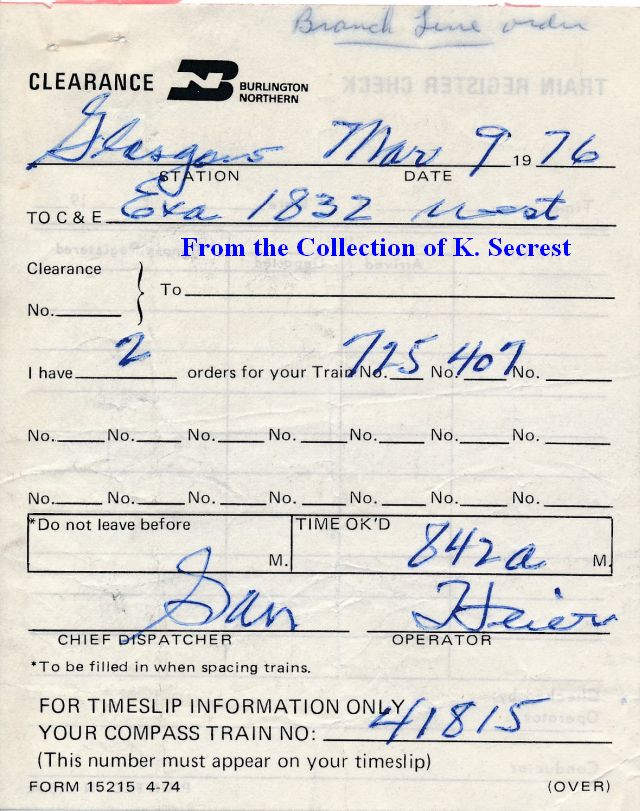 Branch Line order
CLEARANCE BN BURLINGTON NORTHERN
Glasgow Mar 9 1976
STATION DATE
TO C & E Exa 1832 west
From the Collection of K. Secrest
Clearance
No. To
I have 2 orders for your Train No. 725 No. 407 No.
No. No. No. No. No. No. No.
No. No. No. No. No. No. No.
*Do not leave before M. TIME OK'D 842a M.
Heier
CHIEF DISPATCHER OPERATOR
*To be filled in when spacing trains.
FOR TIMESLIP INFORMATION ONLY
YOUR COMPASS TRAIN NO: 41815
(This number must appear on your timeslip)
FORM 15215 4-74 (OVER)